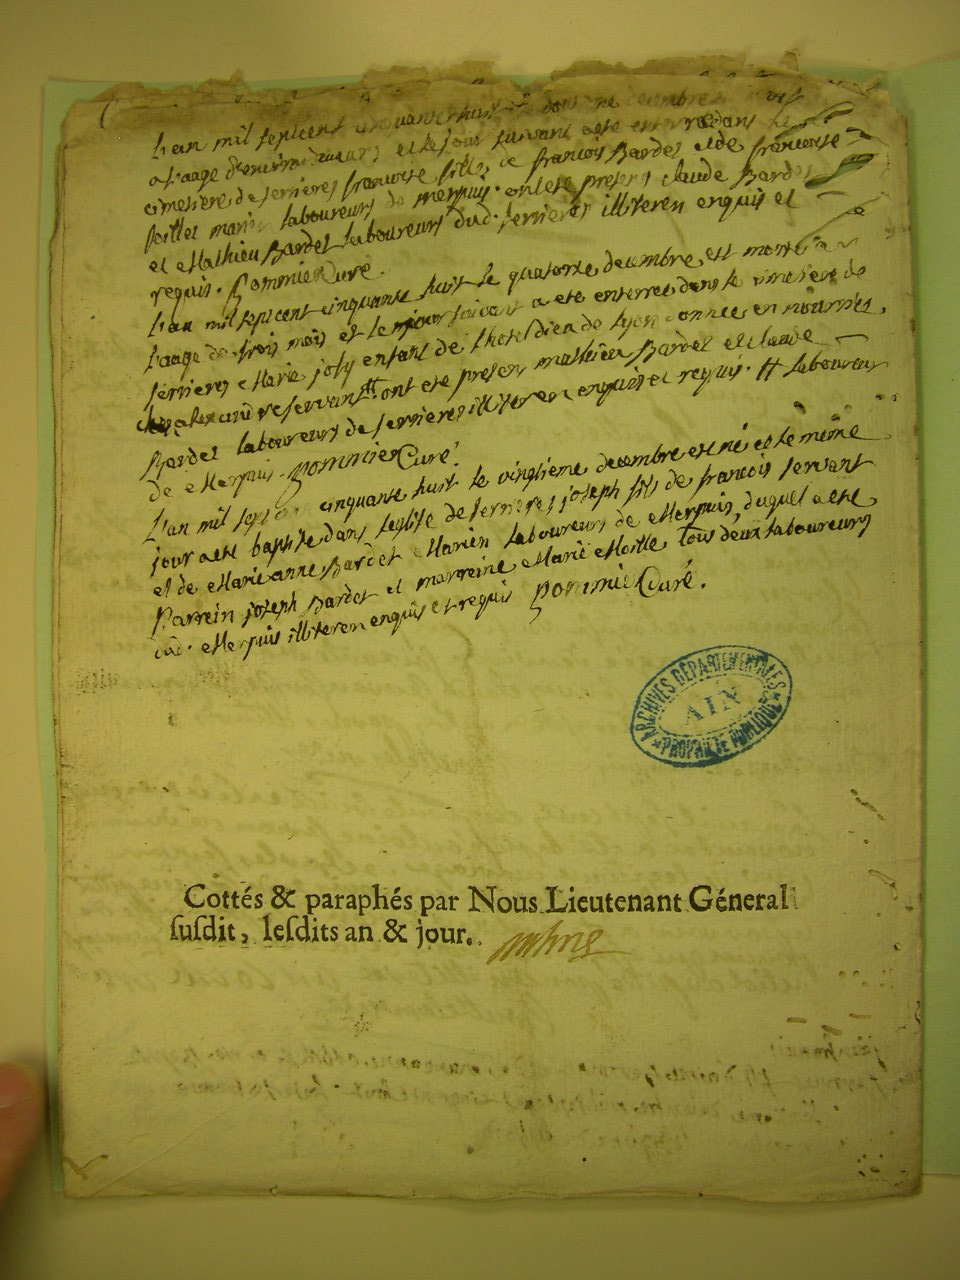 L'an mil septcent cinquante huit le decembre
a l'aage d'environ deux ans et le jour suivant a ete enterrée dans le
cimetiere de serrieres francoise fille de francois Bardet et de francoise
mariés laboureurs de merpuis. ont été presens claude Bardet
et Mathieu Bardet laboureurs dud. serrieres illiteren enquis et
requis. pommier Curé.
L'an mil septcent cinquante huit le quatorze decembre est morte a
l'aage de trois mois et le jour suivant a ete enterree dans le cimetiere de
serrieres Marie joly enfant de l'hotel dieu de lyon donnee en nourrice
servant # ont ete presens mathieu Bardet et claude
Bardet laboureurs de serrieres illiteren enquis et requis. # laboureur
de Merpuis. pommier Curé.
L'an mil sept cinquante huit le vingtieme decembre est né et le même
jour a ete baptise dans l'eglise de serrieres joseph fils de francois servant
et de Marieanne Bardet Mariés laboureurs de Merpuis, duquel a ete
Parrein joseph Bardet et marreine Marie tous deux laboureurs
dud. Merpuis illiteren enquis et requis pommier Curé.
ARCHIVES DÉPARTEMENTALES
AIN
PROPRIÉTÉ PUBLIQUE
Cottés & paraphés par Nous Lieutenant Géneral
ſuſdit, leſdits an & jour.